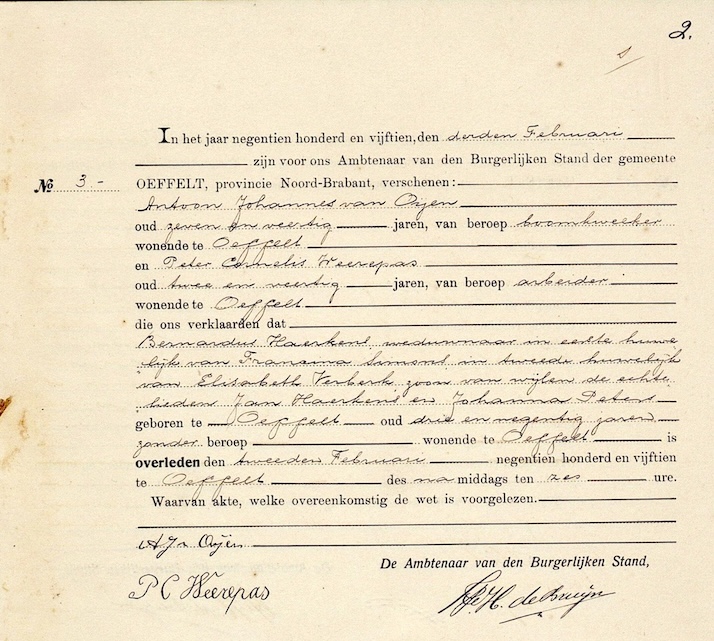 2.
In het jaar negentien honderd en vijftien, den derden Februari
zijn voor ons Ambtenaar van den Burgerlijken Stand der gemeente
No 3.- OEFFELT, provincie Noord-Brabant, verschenen:
Antoon Johannes van Oijen
oud zeven en veertig jaren, van beroep boomkweeker
wonende te Oeffelt
en Peter Cornelis Weerepas
oud twee en veertig jaren, van beroep arbeider
wonende te Oeffelt
die ons verklaarden dat
Bernardus Haerkens, weduwnaar in eerste huwe
lijk van Francina Simons in tweede huwelijk
van Elisabeth Verberk zoon van wijlen de echte
lieden Jan Haerkens en Johanna Peters
geboren te Oeffelt oud drie en negentig jaren
zonder beroep wonende te Oeffelt is
overleden den tweeden Februari negentien honderd en vijftien
te Oeffelt des na middags ten zes ure.
Waarvan akte, welke overeenkomstig de wet is voorgelezen.
AJv Oijen
De Ambtenaar van den Burgerlijken Stand,
P C Weerepas
H. de Bruijn